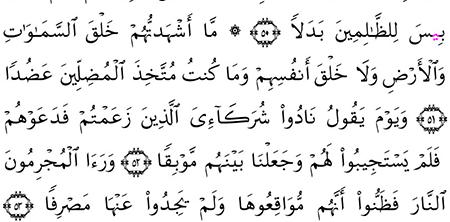 بِيسَ لِلظَّٰلِمِينَ بَدَلٗا ﴿٥٠﴾ ۞ مَّآ أَشۡهَدتُّهُمۡ خَلۡقَ ٱلسَّمَٰوَٰتِ
وَٱلۡأَرۡضِ وَلَا خَلۡقَ أَنفُسِهِمۡ وَمَا كُنتُ مُتَّخِذَ ٱلۡمُضِلِّينَ عَضُدٗا
﴿٥١﴾ وَيَوۡمَ يَقُولُ نَادُواْ شُرَكَآءِيَ ٱلَّذِينَ زَعَمۡتُمۡ فَدَعَوۡهُمۡ
فَلَمۡ يَسۡتَجِيبُواْ لَهُمۡ وَجَعَلۡنَا بَيۡنَهُم مَّوۡبِقٗا ﴿٥٢﴾ وَرَءَا ٱلۡمُجۡرِمُونَ
ٱلنَّارَ فَظَنُّوٓاْ أَنَّهُم مُّوَاقِعُوهَا وَلَمۡ يَجِدُواْ عَنۡهَا مَصۡرِفٗا ﴿٥٣﴾